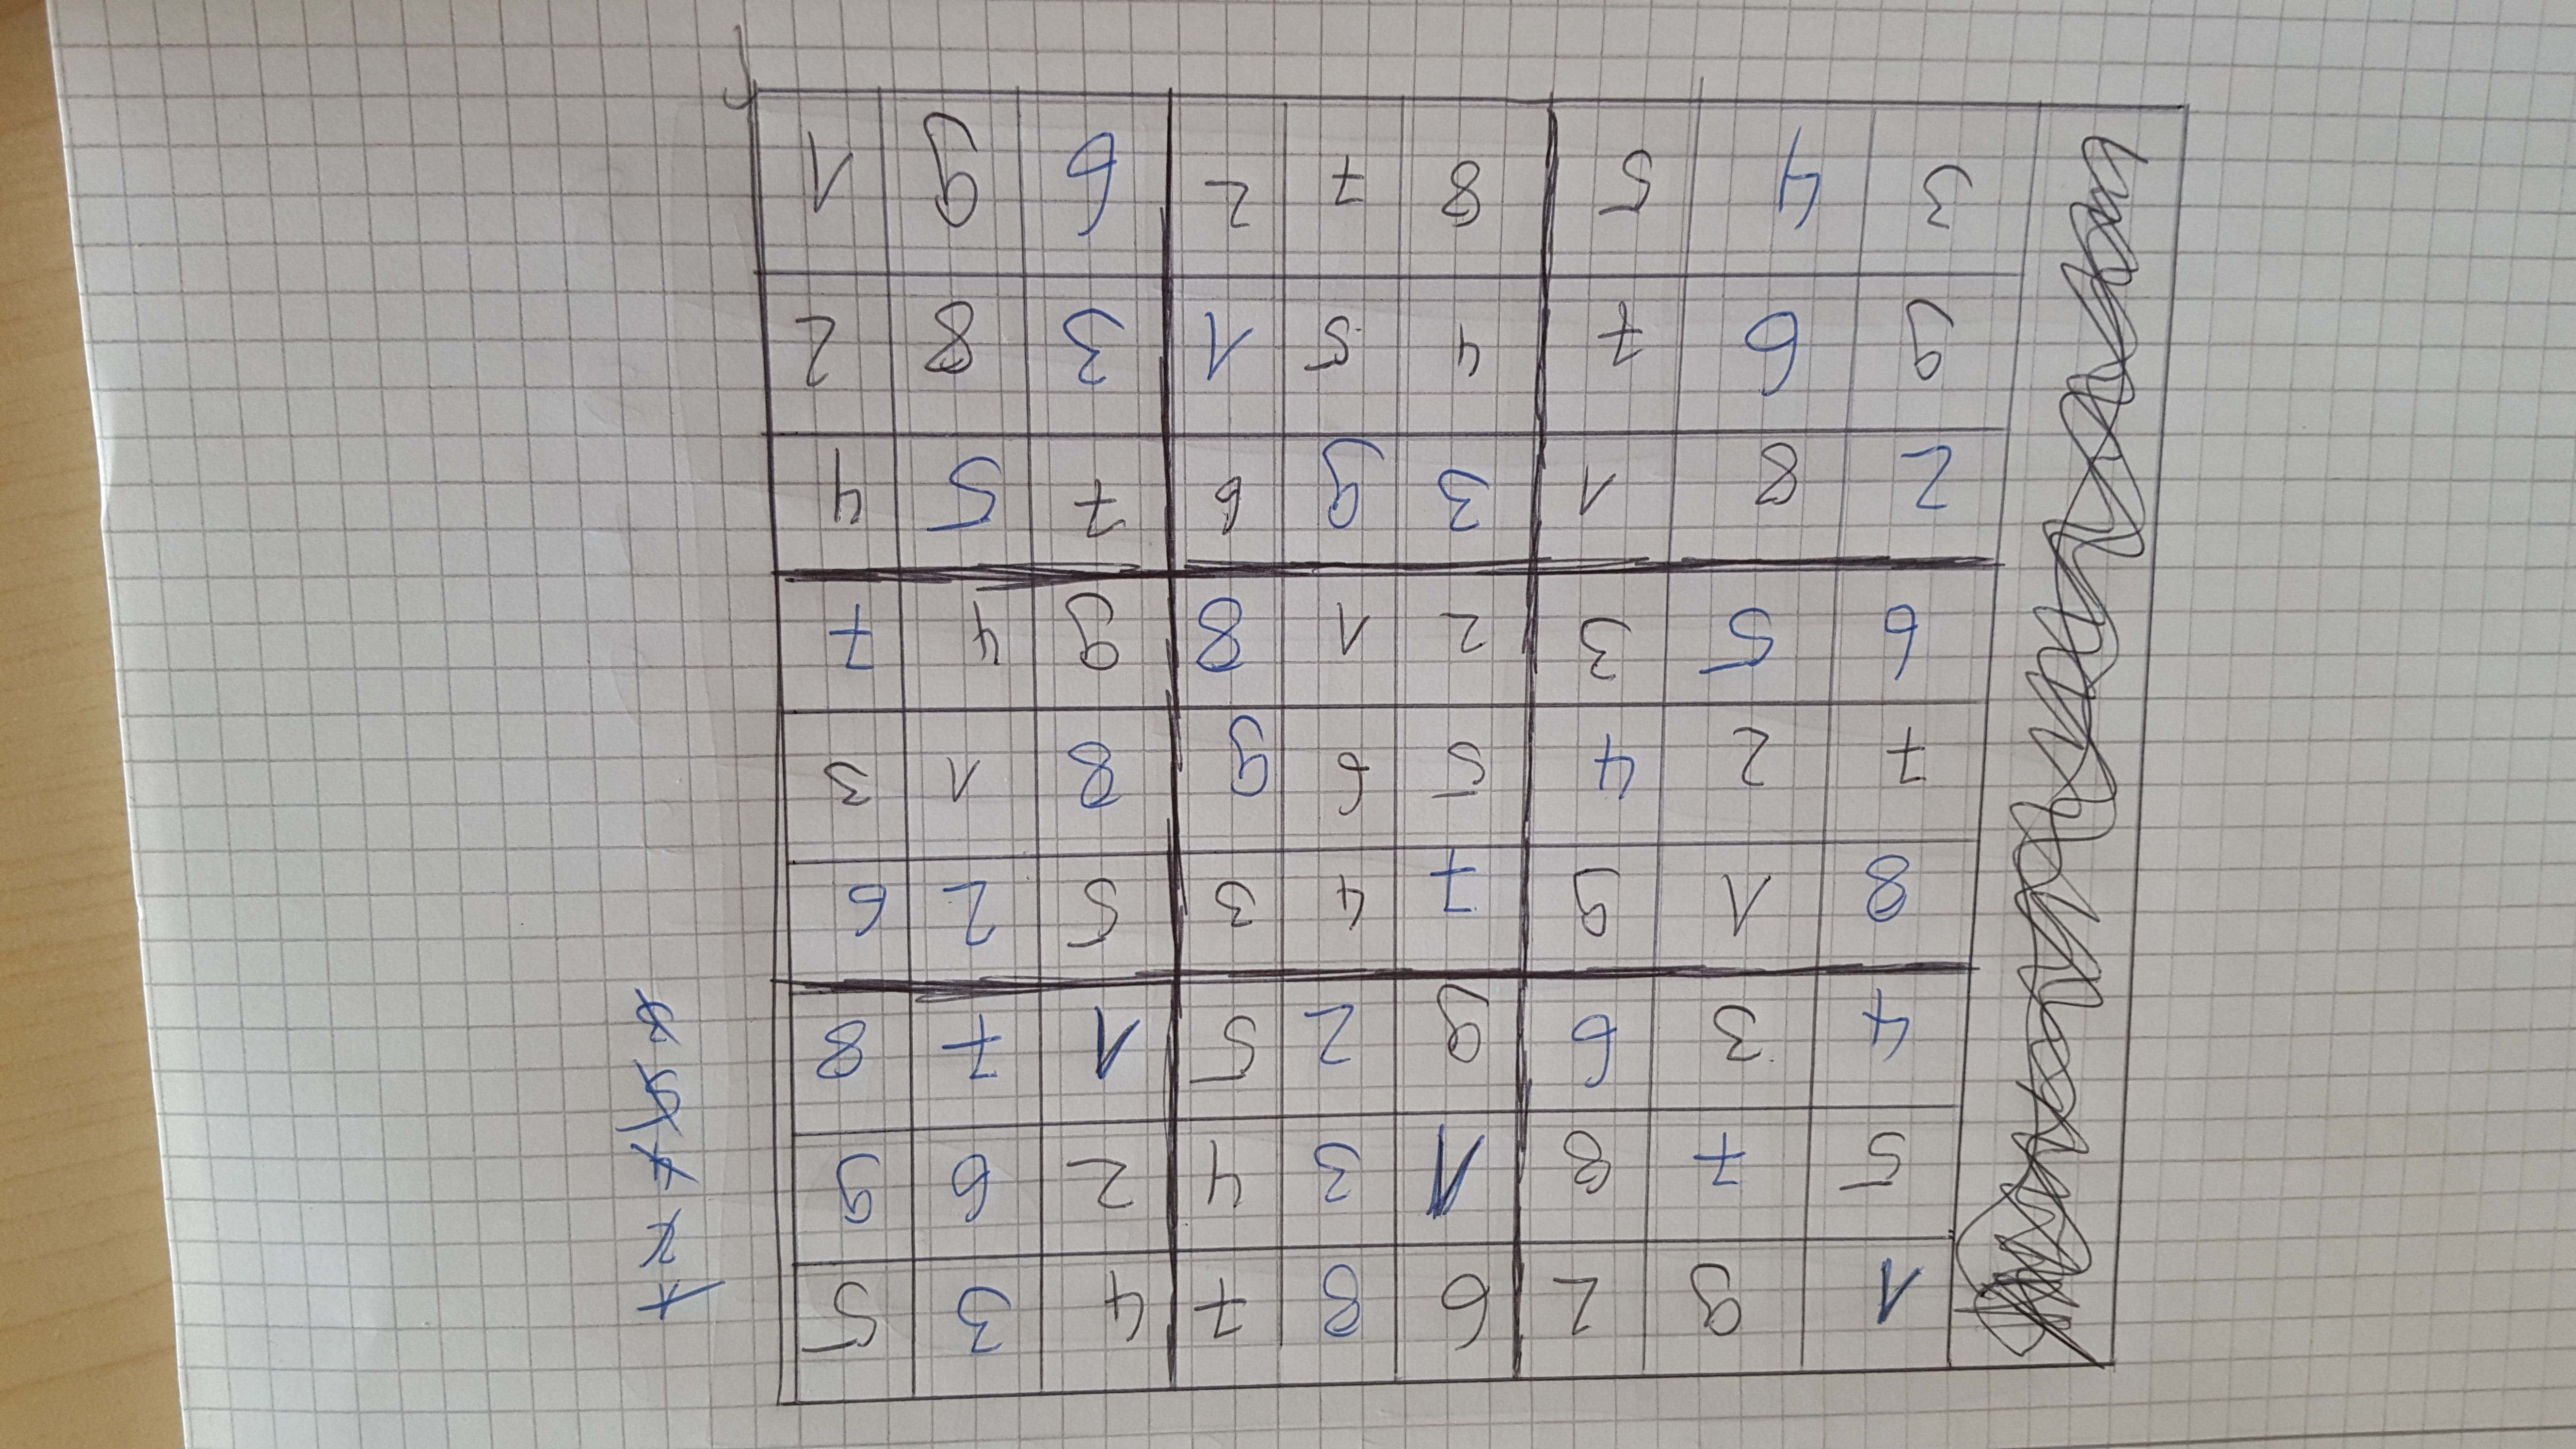 1 9 2 6 8 7 4 3 5
5 7 8 1 3 4 2 6 9
4 3 6 9 2 5 1 7 8
8 1 9 7 4 3 5 2 6
7 2 4 5 6 9 8 1 3
6 5 3 2 1 8 9 4 7
2 8 1 3 9 6 7 5 4
9 6 7 4 5 1 3 8 2
3 4 5 8 7 2 6 9 1